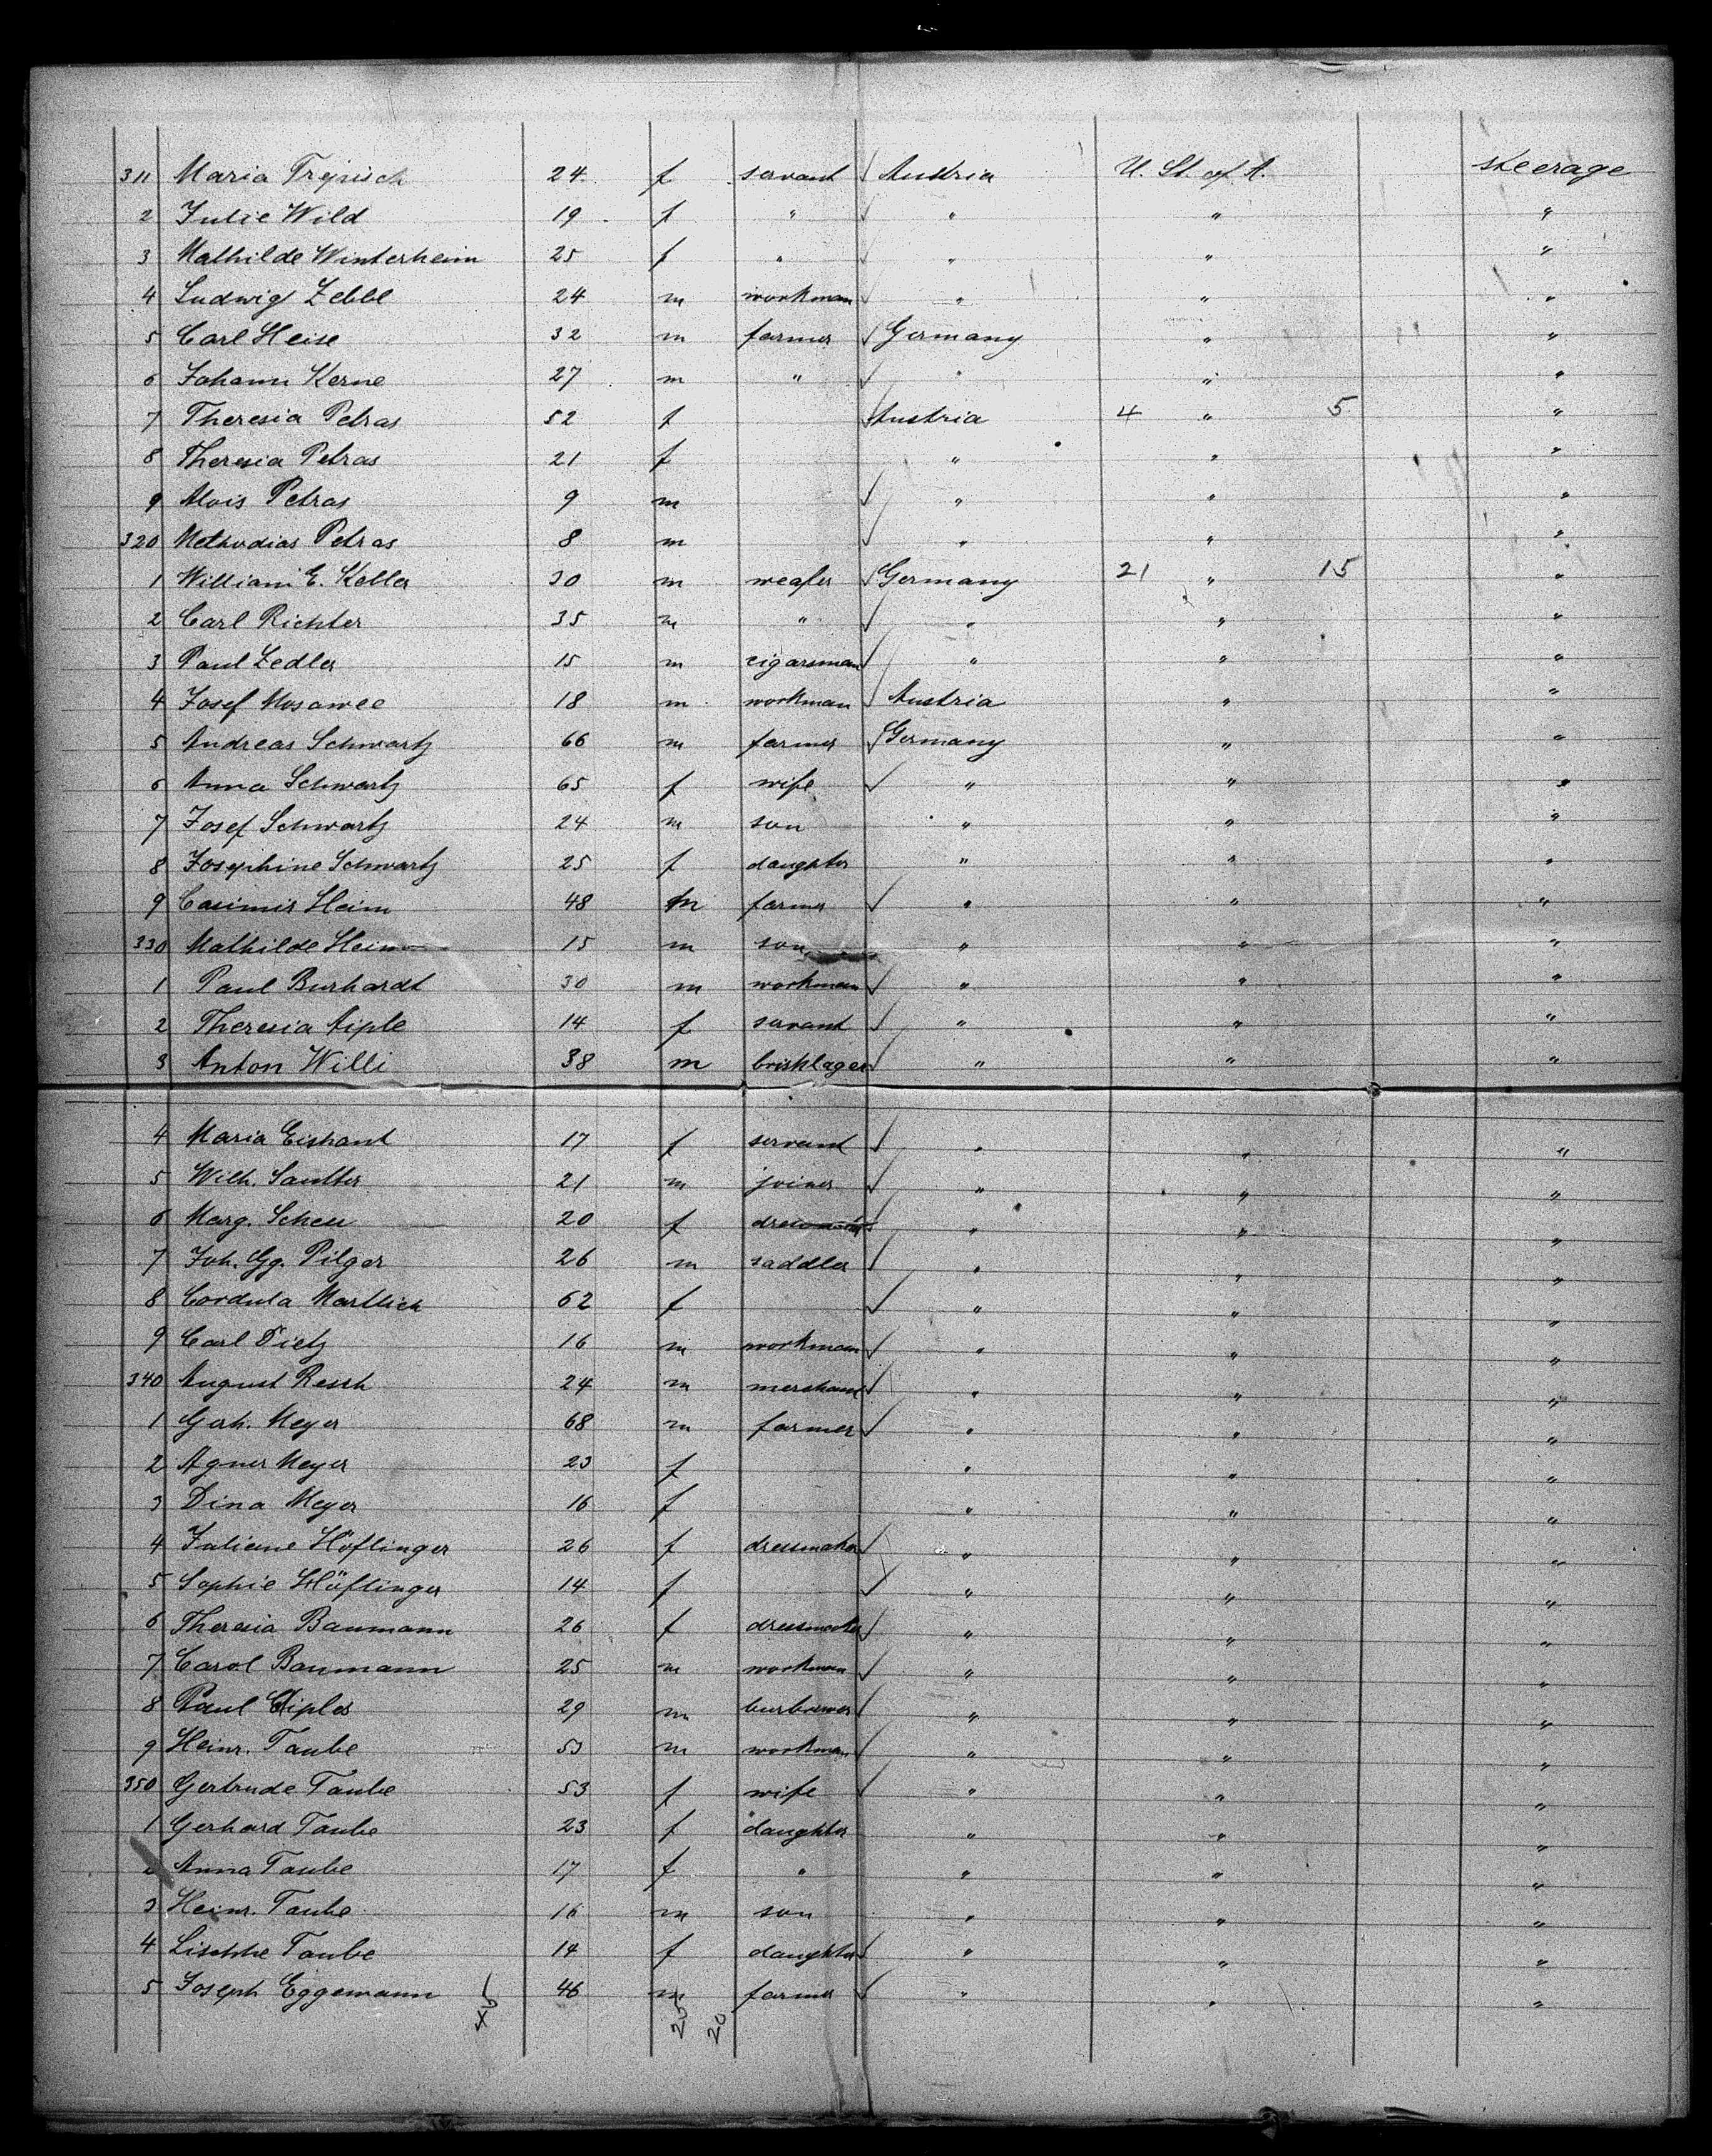 311 Maria Trejsisch 24 f servant Austria U. St. of A. steerage
2 Julie Wild 19 f " " " "
3 Mathilde Winterheim 25 f " " " "
4 Ludwig Zebbl 24 m workman " " "
5 Carl Heise 32 m farmer Germany " "
6 Johann Kerne 27 m " " " "
7 Theresia Petras 52 f Austria 4 " 5 "
8 Theresia Petras 21 f " " "
9 Alois Petras 9 m " " "
320 Methodias Petras 8 m " " "
1 William E. Keller 30 m weafer Germany 21 " 15 "
2 Carl Richter 35 m " " " "
3 Paul Zedler 15 m cigarsman " " "
4 Josef Mosawec 18 m workman Austria " "
5 Andreas Schwartz 66 m farmer Germany " "
6 Anna Schwartz 65 f wife " " "
7 Josef Schwartz 24 m son " " "
8 Josephine Schwartz 25 f daughter " " "
9 Casimir Heim 48 m farmer " " "
330 Mathilde Heim 15 m son " " "
1 Paul Burhardt 30 m workman " " "
2 Theresia Aiple 14 f servant " " "
3 Anton Willi 38 m brishlager " " "
4 Maria Eishant 17 f servant " " "
5 Wilh. Sautter 21 m joiner " " "
6 Marg. Scheu 20 f " " "
7 Joh. Gg. Pilger 26 m saddler " " "
8 Cordula Martlich 62 f " " "
9 Carl Dietz 16 m workman " " "
340 August Resch 24 m merchant " " "
1 Gerh. Meyer 68 m farmer " " "
2 Agnes Meyer 23 f " " "
3 Dina Meyer 16 f " " "
4 Juliane Höflinger 26 f dressmaker " " "
5 Sophie Höflinger 14 f " " "
6 Theresia Baumann 26 f dressmaker " " "
7 Carol Baumann 25 m workman " " "
8 Paul 29 m " " "
9 Heinr. Taube 53 m workman " " "
350 Gertrude Taube 53 f wife " " "
1 Gerhard Taube 23 f daughter " " "
2 Anna Taube 17 f " " " "
3 Heinr. Taube 16 m son " " "
4 Lischke Taube 14 f daughter " " "
5 Joseph Eggemann 46 m farmer " " "
45 25 20